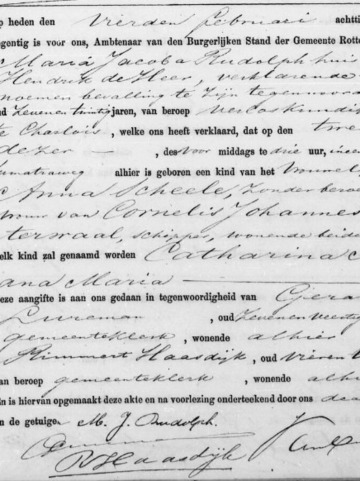 p heden den vierden februari achttie
gentig is voor ons, Ambtenaar van den Burgerlijken Stand der Gemeente Rotte
Maria Jacoba Rudolph huis
Hendrik de Heer, verklarende
noemen bevalling te zijn tegenwoord
d zevenentwintig jaren, van beroep verloskundig
te Charlois, welke ons heeft verklaard, dat op den twe
dezer —, des voor middags te drie uur, in een
umatraweg alhier is geboren een kind van het vrouwel
Anna Scheele, zonder beroep
vrouw van Cornelis Johannes
terwaal, schipper, wonende beide
elk kind zal genaamd worden Catharina
ana Maria —
eze aangifte is aan ons gedaan in tegenwoordigheid van Gera
Bureman, oud zevenenveertig
gemeenteklerk, wonende alhier
Haasdijk, oud vieren
an beroep gemeenteklerk, wonende alhi
n is hiervan opgemaakt deze akte en na voorlezing onderteekend door ons
en de getuigen. M. J. Rudolph.
Haasdijk